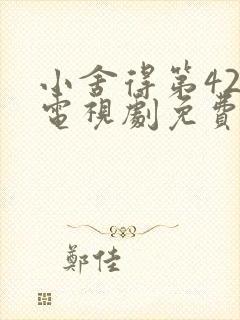 小舍得第42
電視劇免費
鄭佳